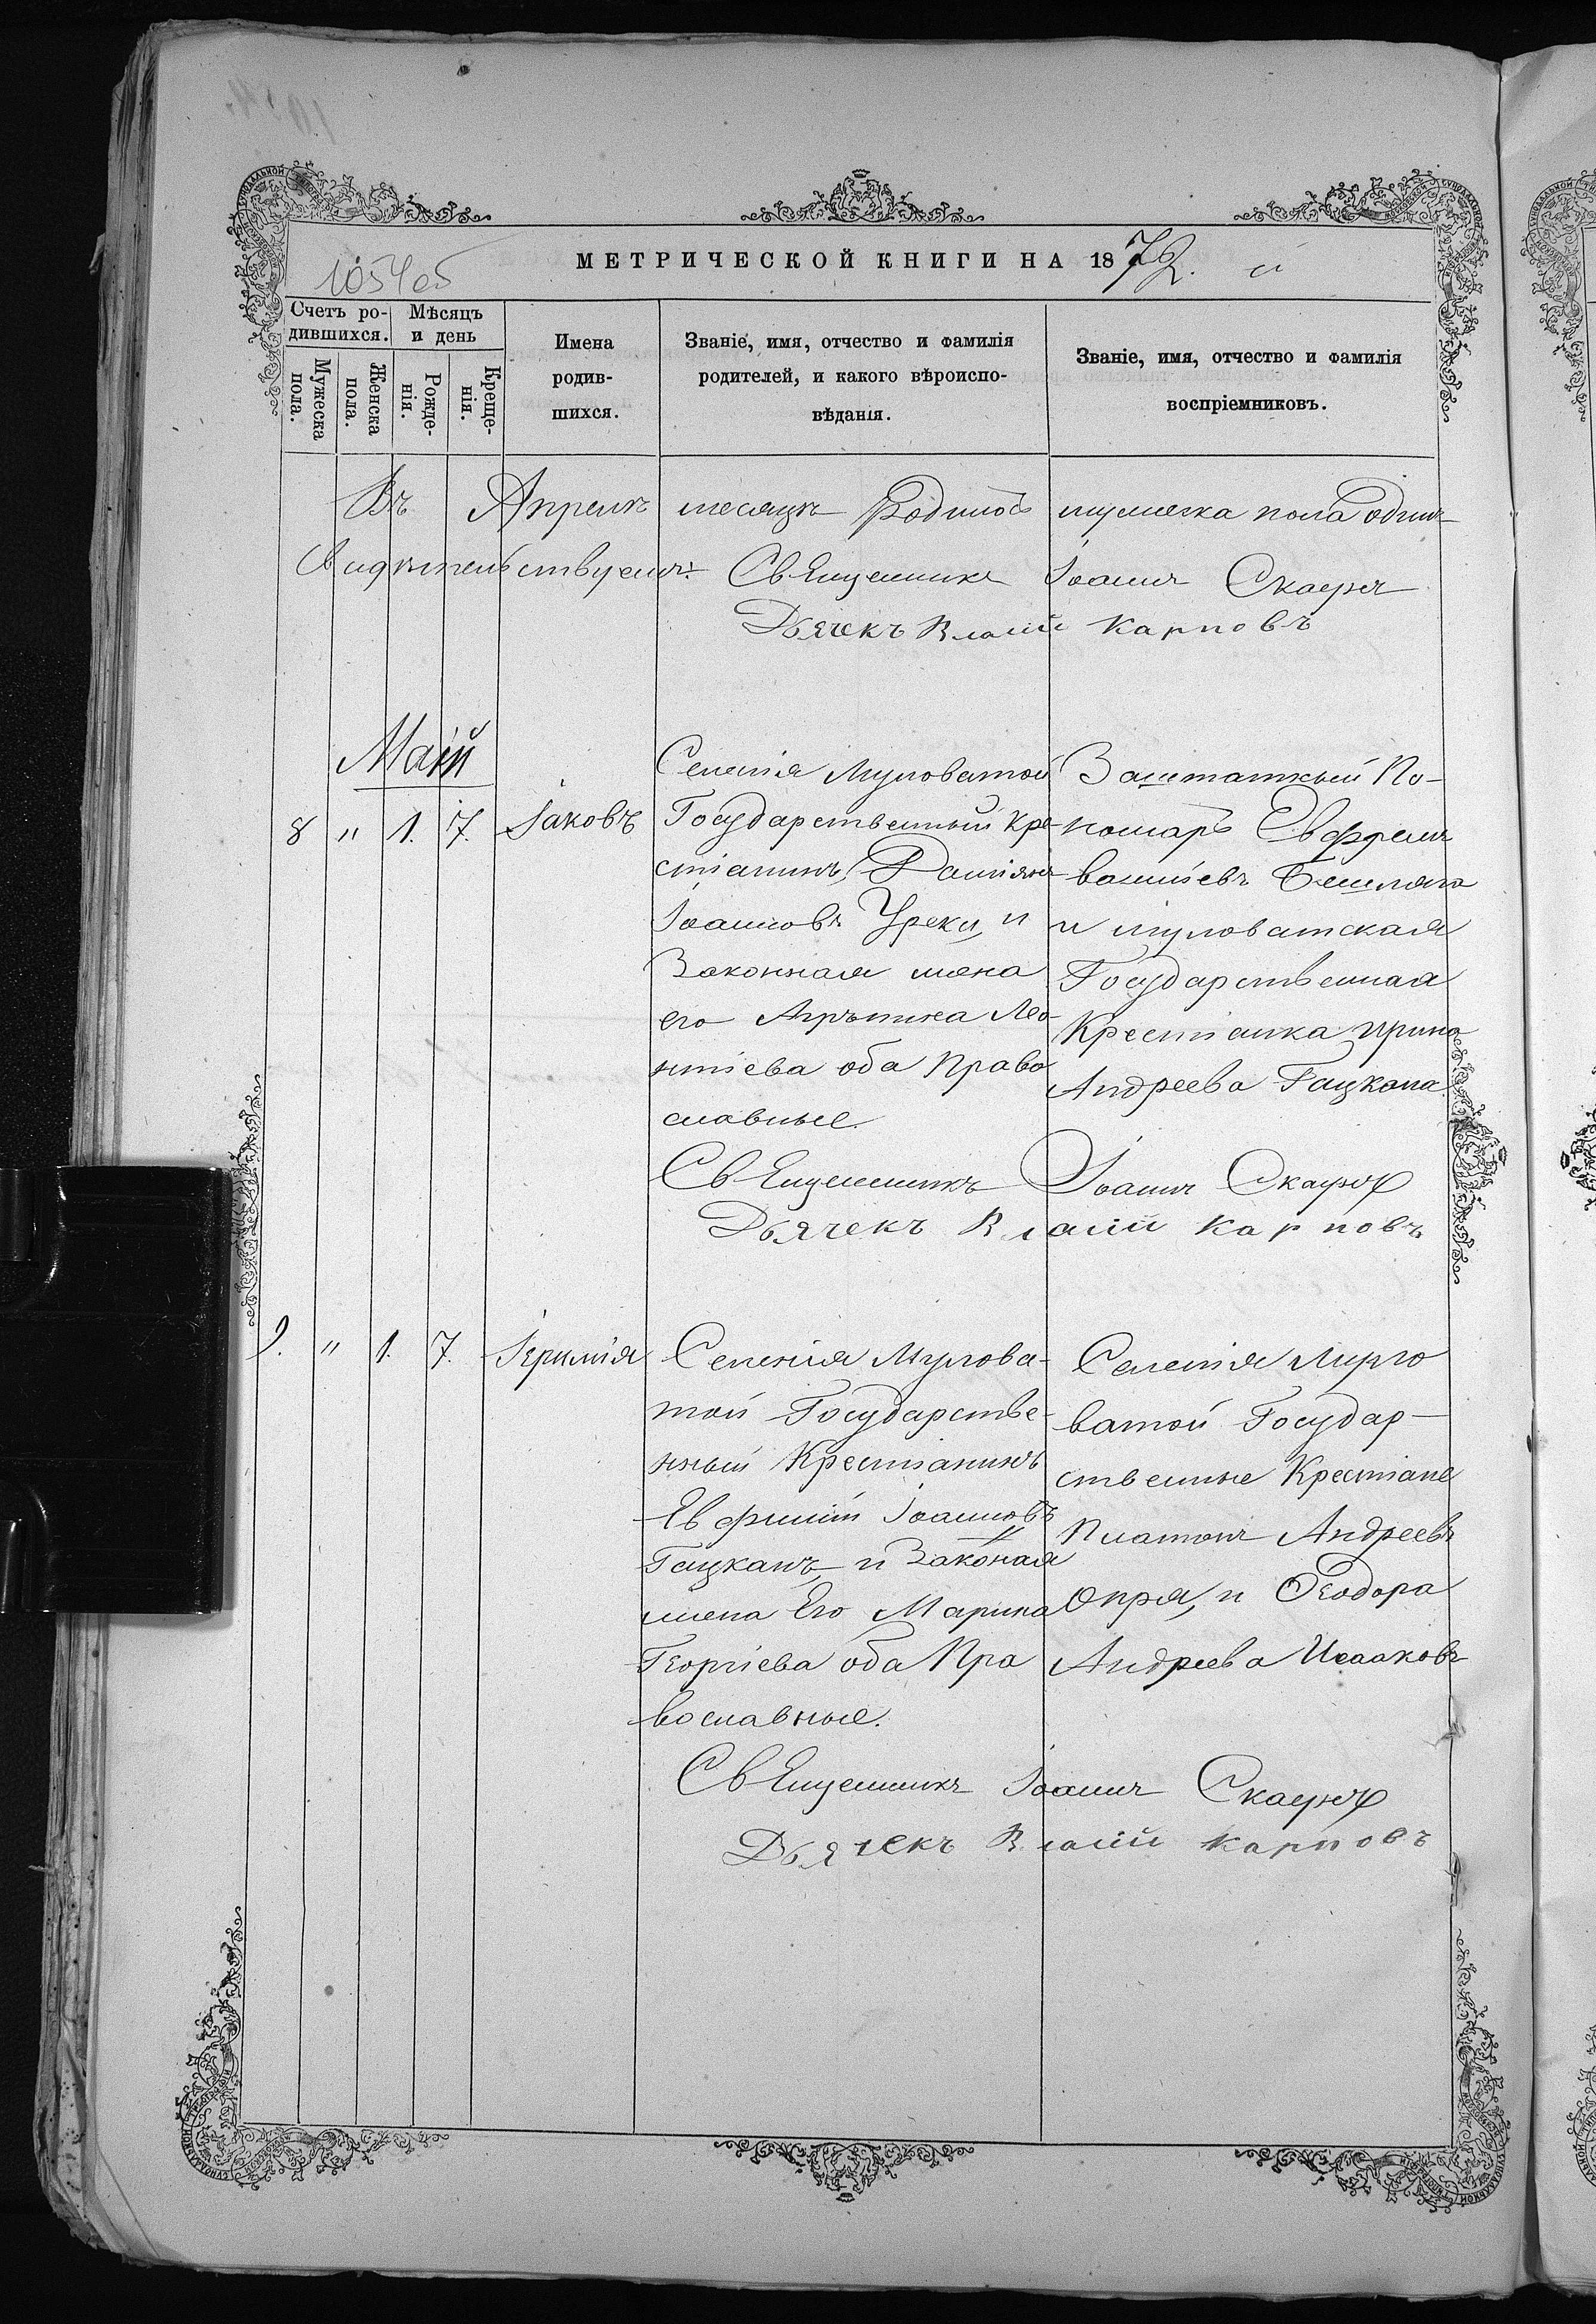 1054об
МЕТРИЧЕСКОЙ КНИГИ НА 1872. й
Счетъ ро-
дившихся.
Мѣсяцъ
и день
Мужеска
пола.
Женска
пола.
Рожде-
нія.
Креще-
нія.
Имена
родив-
шихся.
Званіе, имя, отчество и фамилія
родителей, и какого вѣроиспо-
вѣданія.
Званіе, имя, отчество и фамилія
воспріемниковъ.
Въ Апрелѣ месяцѣ Родилось мужеска пола одинъ
Свидѣтельствуемъ: СвЕщенникъ Іоаннъ
Дьячекъ Власій Карповъ
Маій
8 " 1. 7. Іаковъ
Селенія Муловатой
Государственный Кре-
стіанинъ, Даміянъ
Іоанновъ Уреки, и
Законная жена
его Агрьпина Лео-
нтіева оба Право
славные.
Заштатный По-
номарь Евфремъ
и муловатская
Государственная
Крестіанка Ирина
Андреева Гацкана
СвЕщенникъ Іоаннъ
Дьячекъ Власій Карповъ
9. " 1. 7. Іеримія
Селенія Мулова-
той Государстве-
нный Крестіанинъ
Евфимій Іоанновъ
Гацканъ, и Законая
жена Его Марина
Георгіева оба Пра
вославные.
Селенія Муло
ватой Государ-
ственные Крестіане
Платонъ Андреевъ
Опря, и Феодора
Андреева Исааковъ
СвЕщенникъ Іоаннъ
Дьячекъ Власій Карповъ